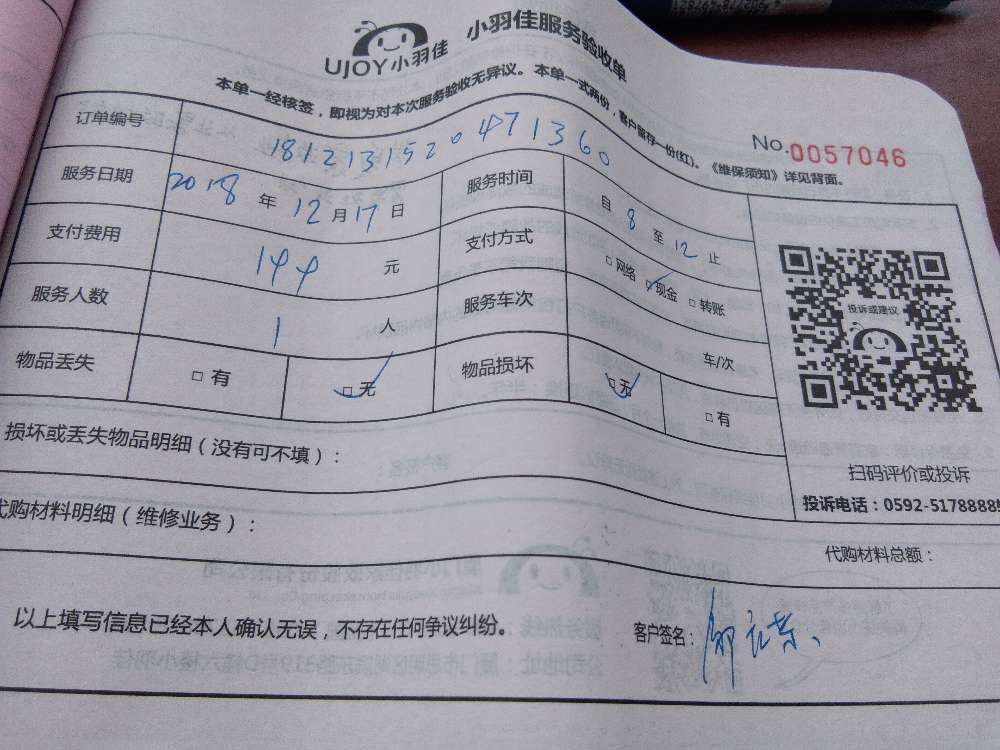 UJOY小羽佳 小羽佳服务验收单
本单一经核签，即视为对本次服务验收无异议。本单一式两份，客户留存一份(红)。《维保须知》详见背面。
No.0057046
订单编号 1812131520471360
服务日期 2018年12月17日 服务时间 自8至12止
支付费用 144元 支付方式 □网络 □现金 □转账
服务人数 1人 服务车次 车/次
物品丢失 □有 □无 物品损坏 □无 □有
投诉或建议
扫码评价或投诉
投诉电话：0592-5178888
损坏或丢失物品明细（没有可不填）：
代购材料明细（维修业务）：
代购材料总额：
以上填写信息已经本人确认无误，不存在任何争议纠纷。
客户签名：